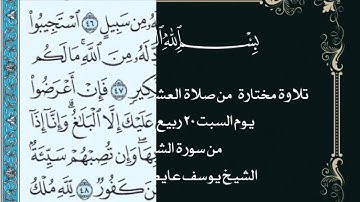 بِسْمِ اللهِ
تلاوة مختارة من صلاة العش
يوم السبت ٢٠ ربيع
من سورة الش
الشيخ يوسف
مِن سَبِيلٍ ٤٦ ٱسْتَجِيبُوا۟
لَهُۥ مِنَ ٱللَّهِ ۚ مَا لَكُم
كِيرٍ ٤٧ فَإِنْ أَعْرَضُوا۟
عَلَيْكَ إِلَّا ٱلْبَلَٰغُ ۗ وَإِنَّآ إِذَآ
هَا ۖ وَإِن تُصِبْهُمْ سَيِّئَةٌۢ
نَ كَفُورٌ ٤٨ لِّلَّهِ مُلْكُ